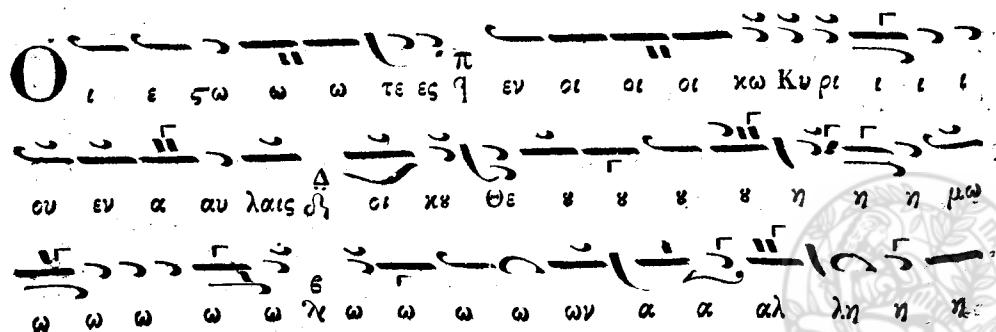 Ο ι ε ϛω ω ω τε ες π ϥ εν οι οι οι κω Κυ ρι ι ι ι
ου εν α αυ λαις Δ οι κȣ Θε ȣ ȣ ȣ ȣ η η η μω
ω ω ω ω ω ϐ λ ω ω ω ω ων α α αλ λη η η